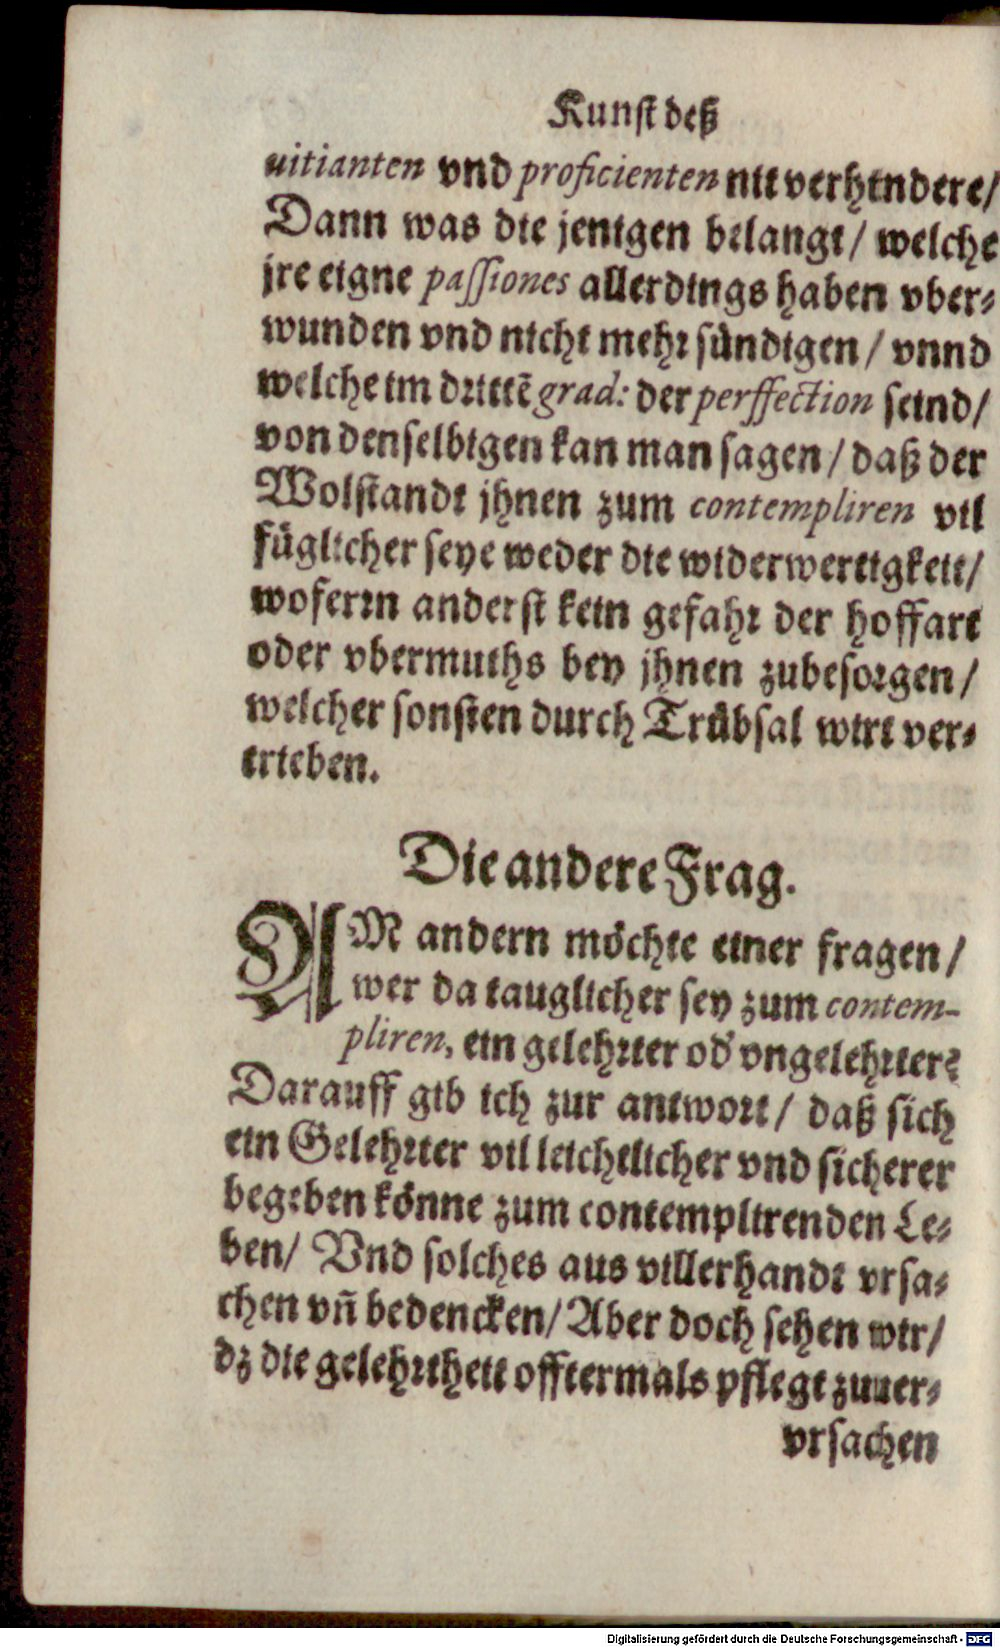 Kunst deß
uitianten vnd proficienten nit verhindere/
Dann was die jenigen belangt/ welche
jre eigne passiones allerdings haben vber-
wunden vnd nicht mehr sündigen/ vnnd
welche im drittē grad: der perffection seind/
von denselbigen kan man sagen/ daß der
Wolstandt jhnen zum contempliren vil
füglicher seye weder die widerwertigkeit/
woferrn anderst kein gefahr der hoffart
oder vbermuths bey jhnen zubesorgen/
welcher sonsten durch Trübsal wirt ver-
trieben.
Die andere Frag.
AM andern möchte einer fragen/
wer da tauglicher sey zum contem-
pliren, ein gelehrter od' vngelehrter?
Darauff gib ich zur antwort/ daß sich
ein Gelehrter vil leichtlicher vnd sicherer
begeben könne zum contemplirenden Le-
ben/ Vnd solches aus villerhandt vrsa-
chen vñ bedencken/ Aber doch sehen wir/
dz die gelehrtheit offtermals pflegt zuuer-
vrsachen
Digitalisierung gefördert durch die Deutsche Forschungsgemeinschaft - DFG